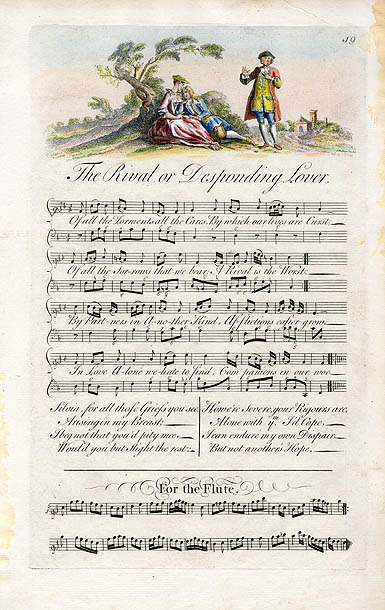 19
The Rival or Desponding Lover.
Of all the Torments all the Cares, By which our lives are Curst;
Of all the Sor-rows that we bear, A Rival is the Worst:
By Part-ners in A-no-ther Kind, Afflictions easier grow,
In Love A-lone we hate to find, Com panions in our woe
Silvia, for all these Griefs you see,
Arising in my Breast:
I beg not that you'd pity me
Would you but slight the rest:
Howe're Severe, your Rigours are,
Alone with ym I'd Cope,
I can endure my own Despair
But not another's Hope.
For the Flute.